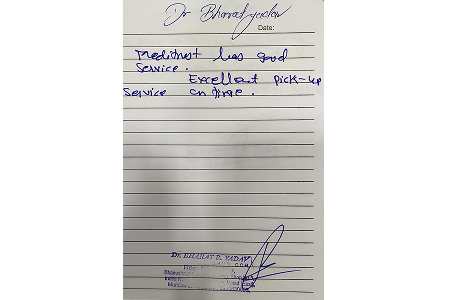 Dr Bharat yadav
Date:
Meditrust has good
Service.
Excellent pick-up
Service on time.
Dr. BHARAT R. YADAV